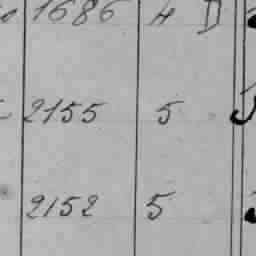 1686 4 D
2155 5
2152 5